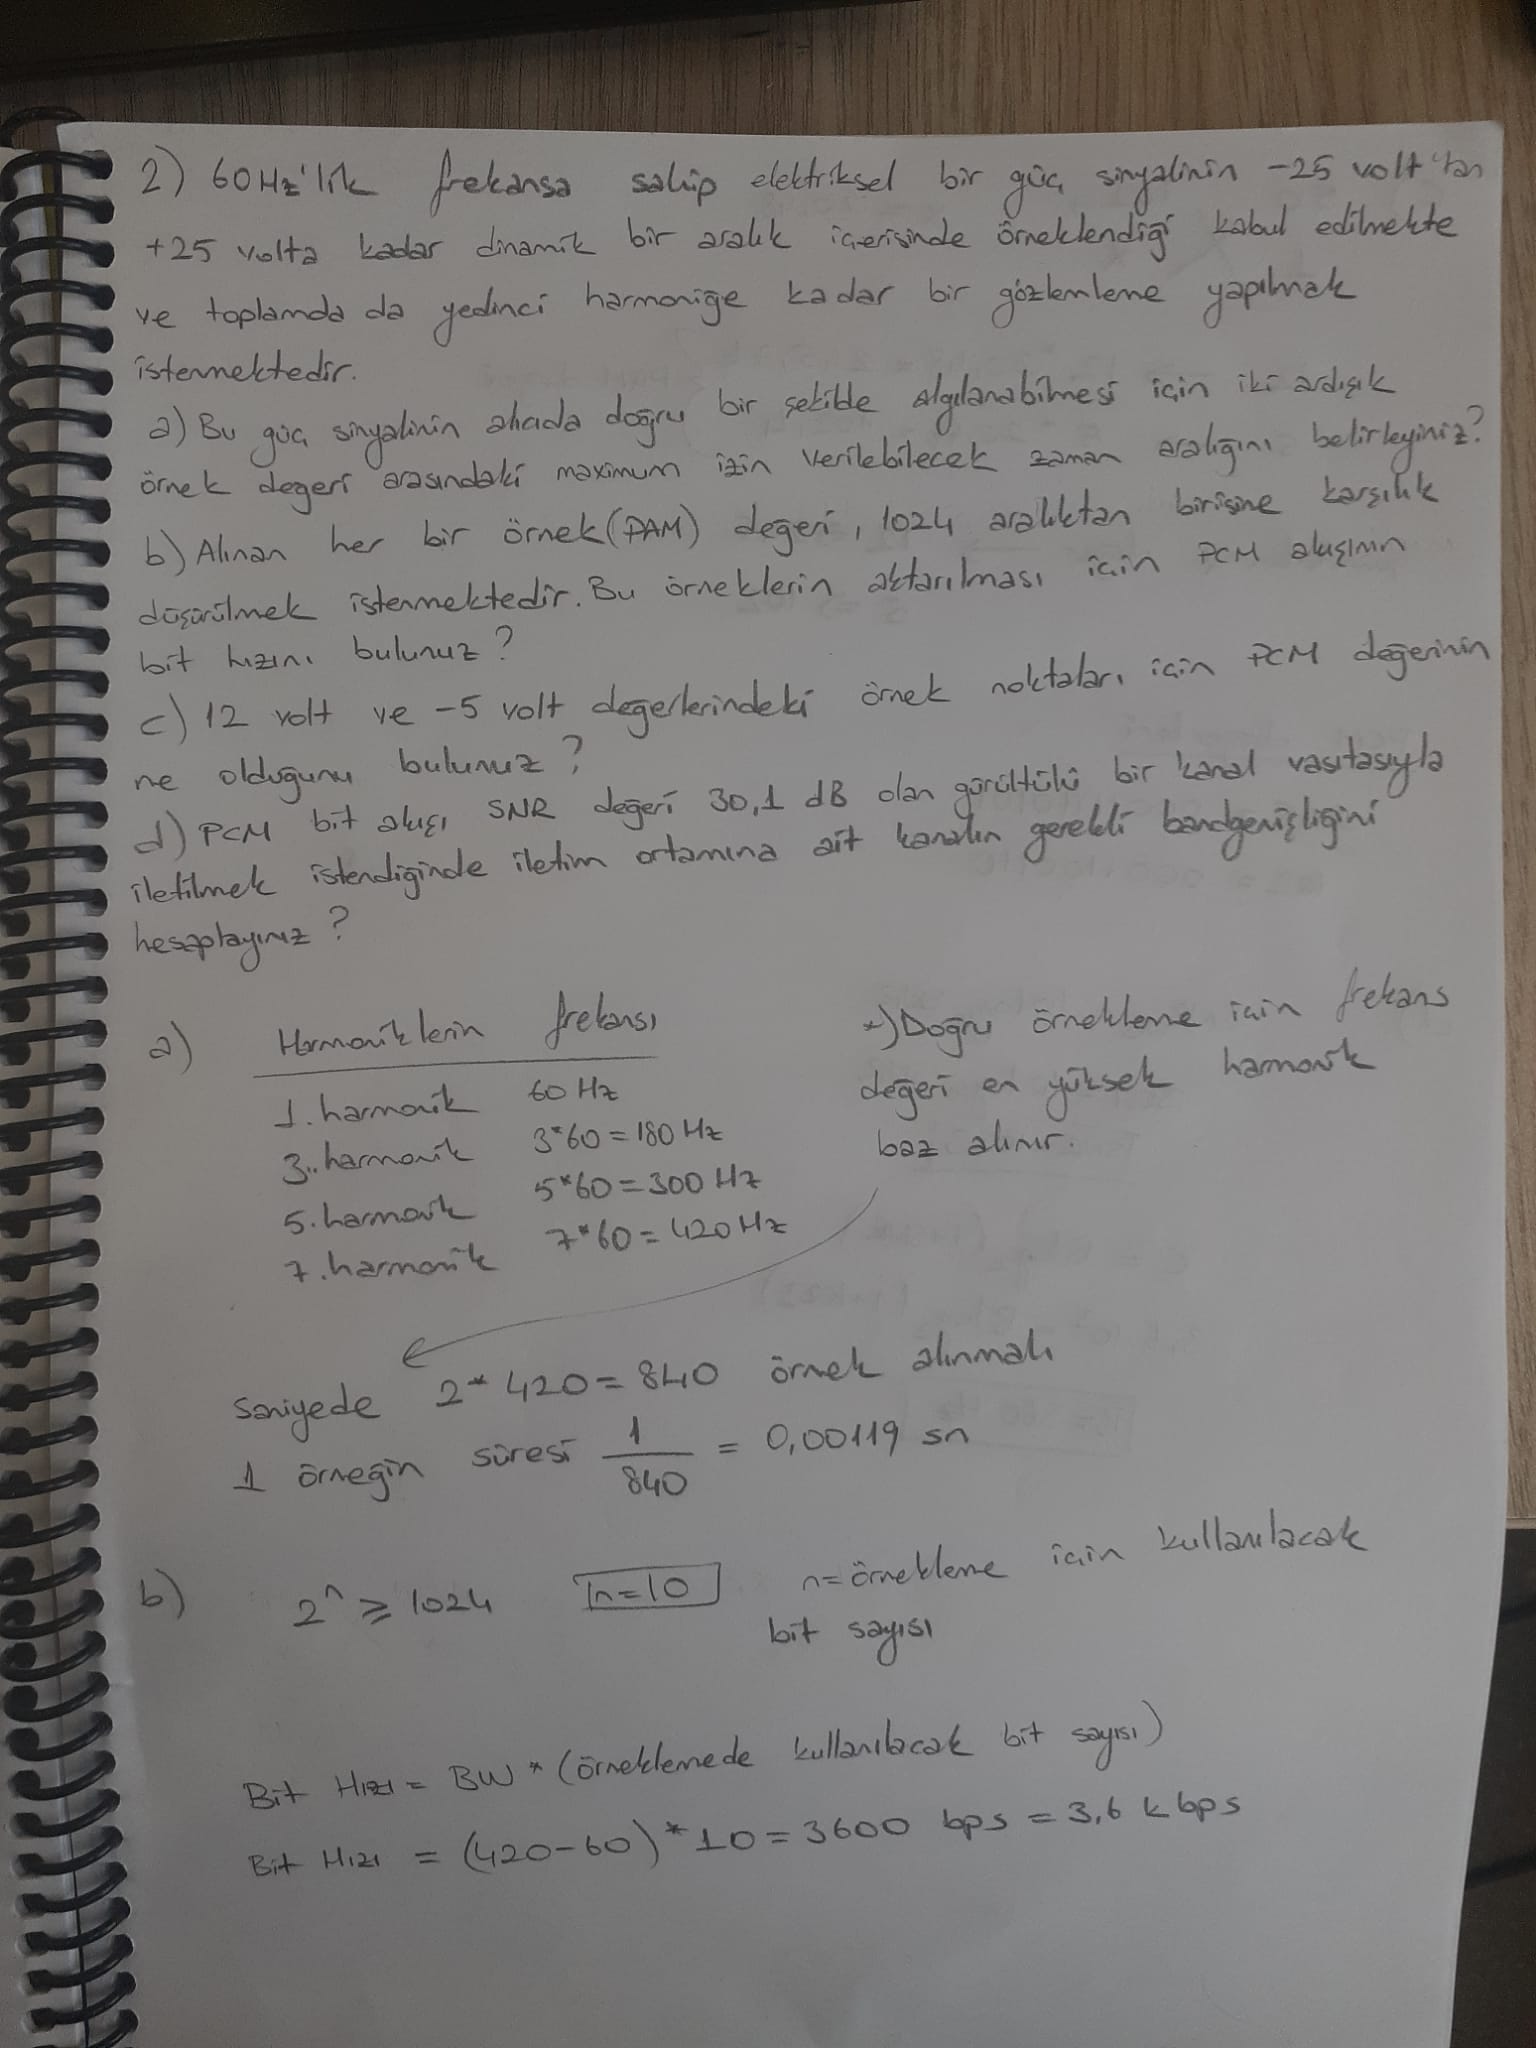 2) 60 Hz'lik frekansa sahip elektriksel bir güç sinyalinin -25 volt'tan
+25 volta kadar dinamik bir aralık içerisinde örneklendiği kabul edilmekte
ve toplamda da yedinci harmoniğe kadar bir gözlemleme yapılmak
istenmektedir.
a) Bu güç sinyalinin alıcıda doğru bir şekilde algılanabilmesi için iki ardışık
örnek değeri arasındaki maximum izin verilebilecek zaman aralığını belirleyiniz?
b) Alınan her bir örnek (PAM) değeri, 1024 aralıktan birisine karşılık
düşürülmek istenmektedir. Bu örneklerin aktarılması için PCM akışının
bit hızını bulunuz?
c) 12 volt ve -5 volt değerlerindeki örnek noktaları için PCM değerinin
ne olduğunu bulunuz?
d) PCM bit akışı SNR değeri 30,1 dB olan gürültülü bir kanal vasıtasıyla
iletilmek istendiğinde iletim ortamına ait kanalın gerekli bandgenişliğini
hesaplayınız?
a) Harmoniklerin frekansı
*) Doğru örnekleme için frekans
değeri en yüksek harmonik
baz alınır.
1. harmonik 60 Hz
3. harmonik 3*60=180 Hz
5. harmonik 5*60=300 Hz
7. harmonik 7*60=420 Hz
Saniyede 2*420=840 örnek alınmalı
1 örneğin süresi 1/840 = 0,00119 sn
b) 2^n ≥ 1024 n=10 n=örnekleme için kullanılacak
bit sayısı
Bit Hızı = BW * (örneklemede kullanılacak bit sayısı)
Bit Hızı = (420-60)*10=3600 bps = 3,6 k bps